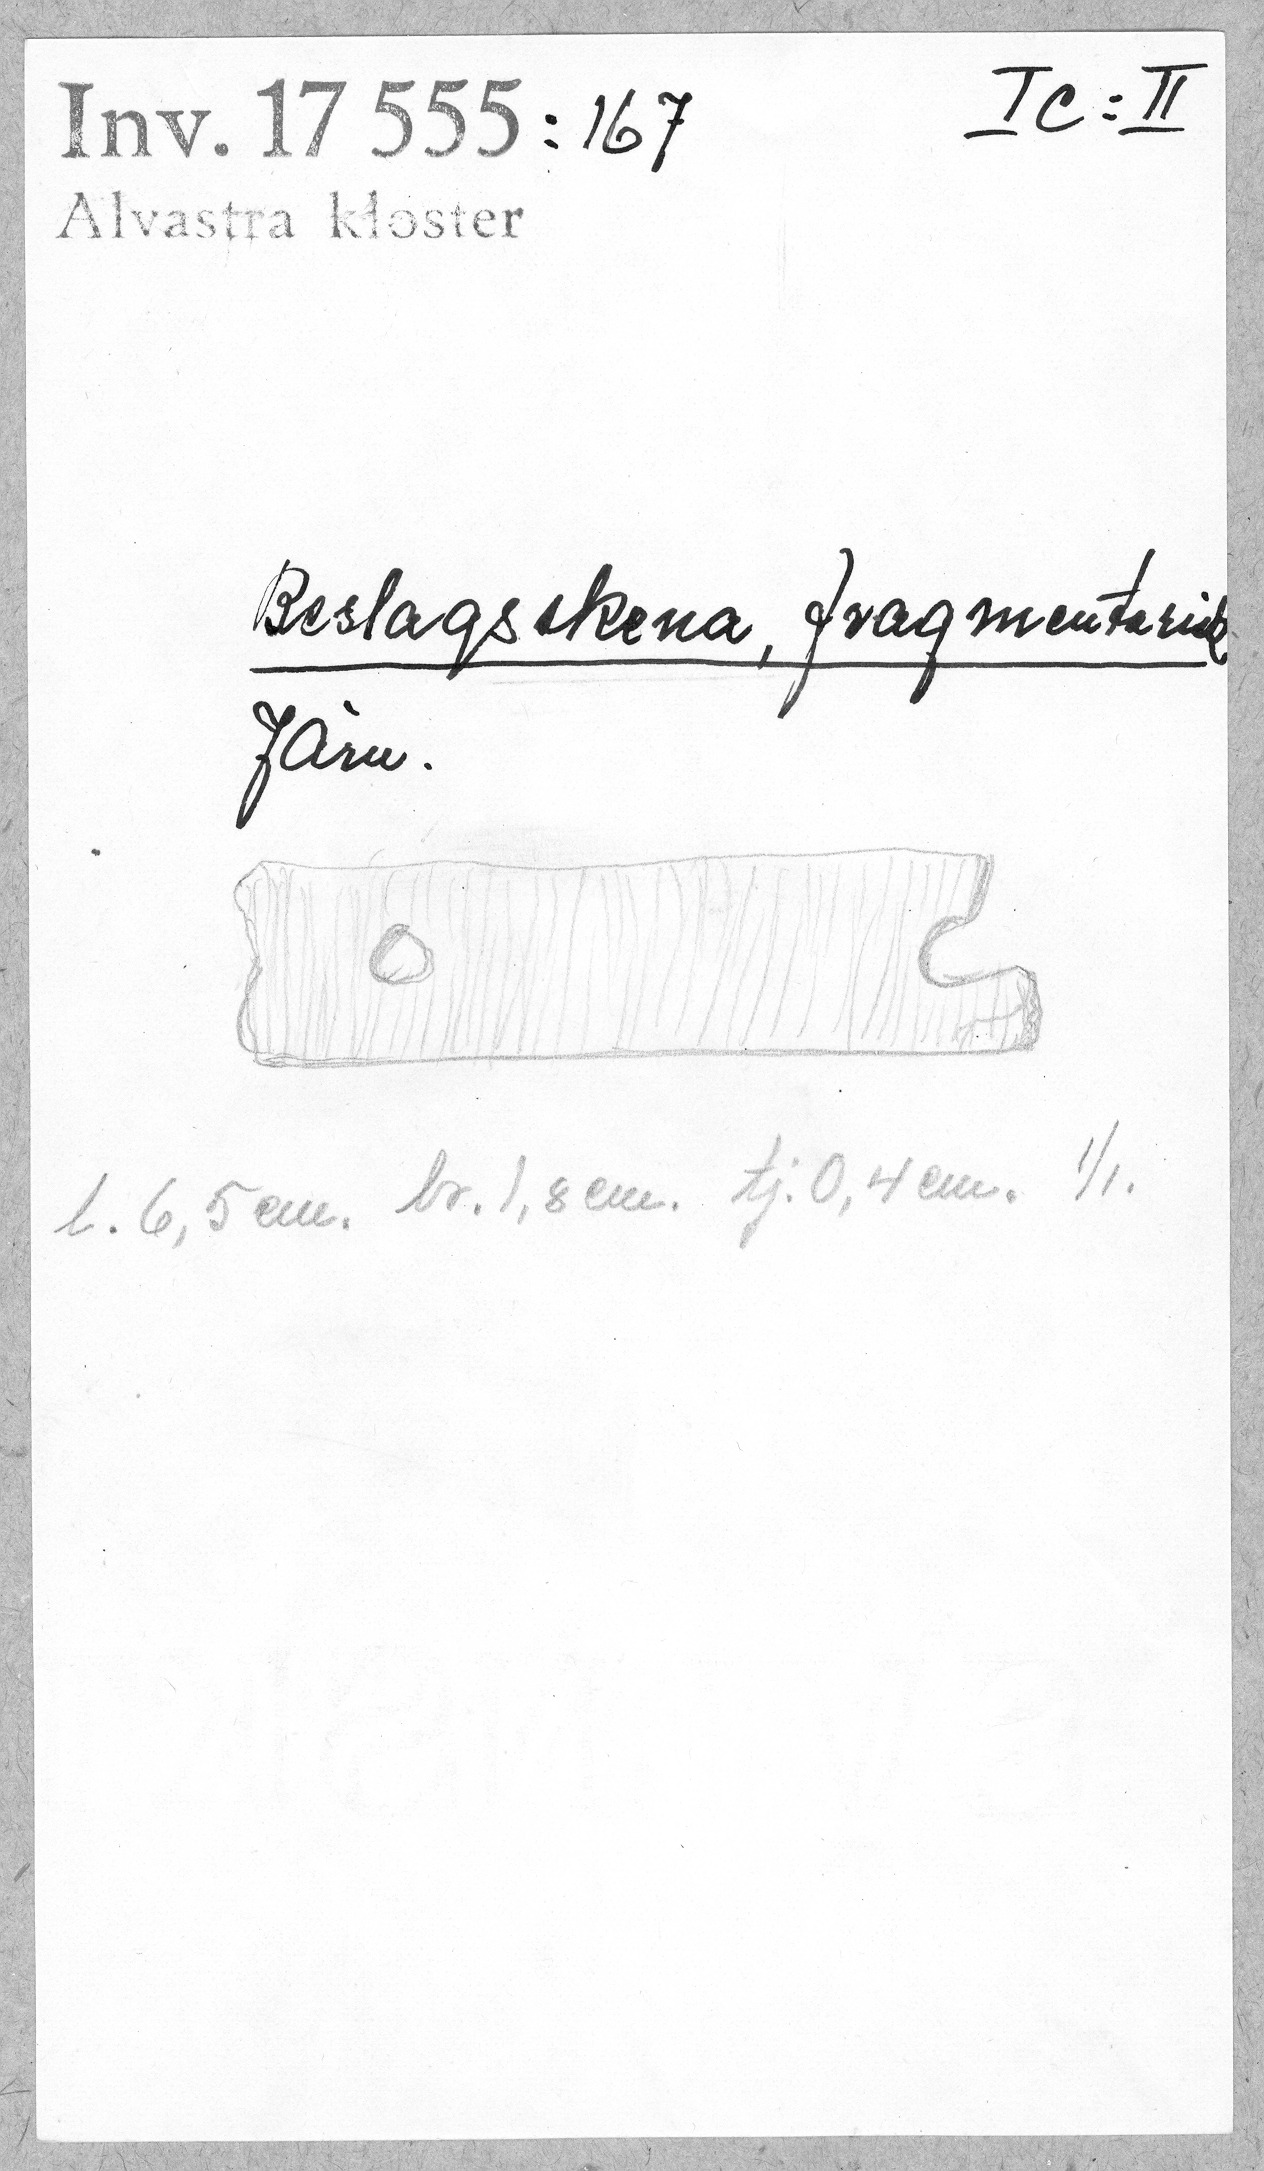 Inv. 17 555 : 167
I C : II
Alvastra kloster
Beslagsskena, fragmentarisk
Järn.
l. 6,5 cm. br. 1,8 cm. tj. 0,4 cm. 1/1.